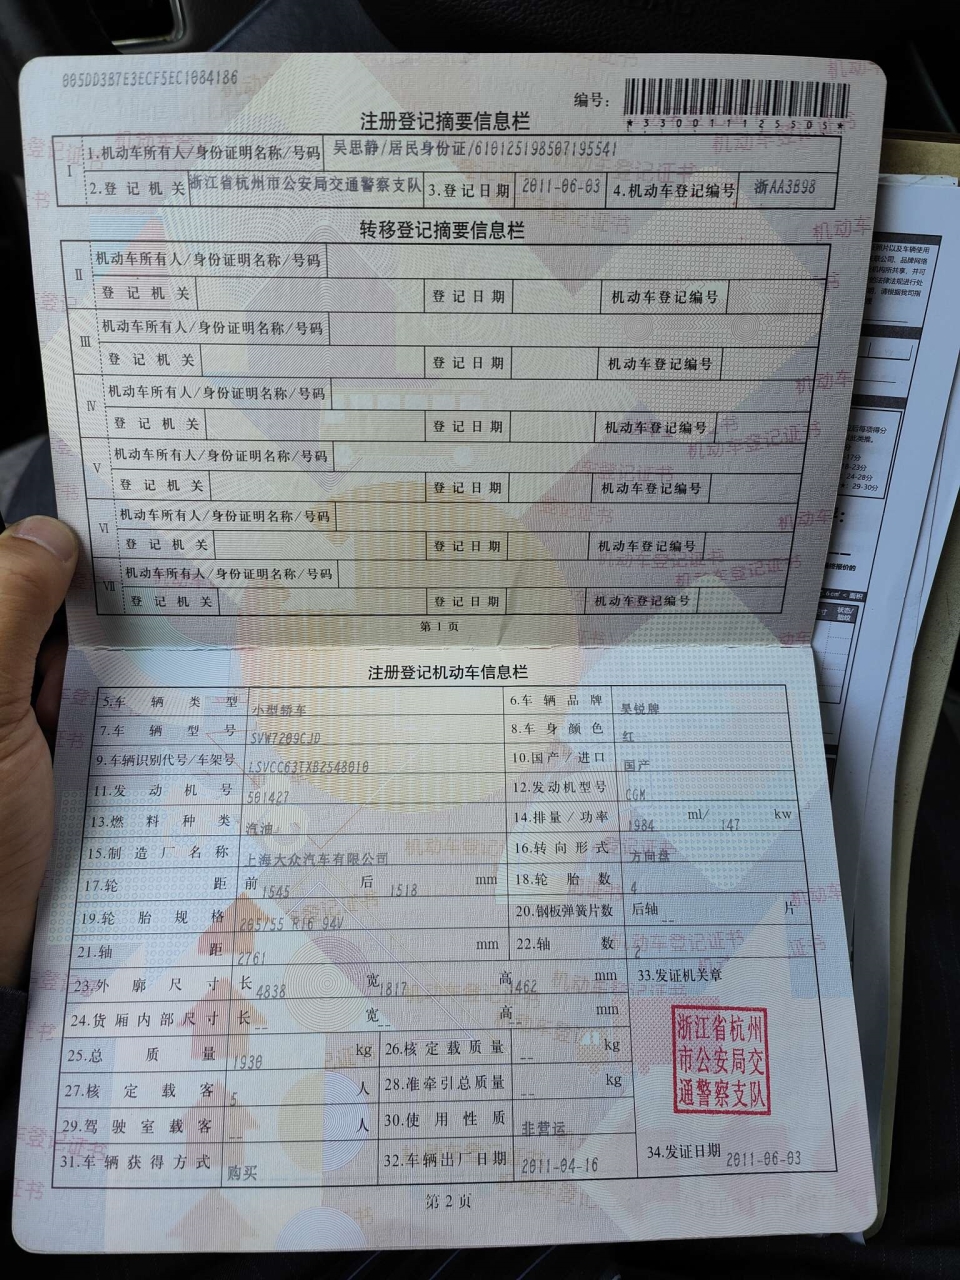 005DD3B7E3ECF5EC1084186
编号：
*330011125505*
注册登记摘要信息栏
I 1.机动车所有人/身份证明名称/号码 吴思静/居民身份证/610125198507195541
2.登记机关 浙江省杭州市公安局交通警察支队 3.登记日期 2011-06-03 4.机动车登记编号 浙AA3B98
转移登记摘要信息栏
II 机动车所有人/身份证明名称/号码
登记机关 登记日期 机动车登记编号
III 机动车所有人/身份证明名称/号码
登记机关 登记日期 机动车登记编号
IV 机动车所有人/身份证明名称/号码
登记机关 登记日期 机动车登记编号
V 机动车所有人/身份证明名称/号码
登记机关 登记日期 机动车登记编号
VI 机动车所有人/身份证明名称/号码
登记机关 登记日期 机动车登记编号
VII 机动车所有人/身份证明名称/号码
登记机关 登记日期 机动车登记编号
第1页
注册登记机动车信息栏
5.车辆类型 小型轿车 6.车辆品牌 昊锐牌
7.车辆型号 SVW7209CJD 8.车身颜色 红
9.车辆识别代号/车架号 LSVCC63TXB2548010 10.国产/进口 国产
11.发动机号 501427 12.发动机型号 CGM
13.燃料种类 汽油 14.排量/功率 1984 ml/ 147 kw
15.制造厂名称 上海大众汽车有限公司 16.转向形式 方向盘
17.轮距 前 1545 后 1518 mm 18.轮胎数 4
19.轮胎规格 205/55 R16 94V 20.钢板弹簧片数 后轴 -- 片
21.轴距 2761 mm 22.轴数 2
23.外廓尺寸 长 4838 宽 1817 高 1462 mm 33.发证机关章
24.货厢内部尺寸 长 -- 宽 -- 高 -- mm
浙江省杭州
市公安局交
通警察支队
25.总质量 1930 kg 26.核定载质量 -- kg
27.核定载客 5 人 28.准牵引总质量 -- kg
29.驾驶室载客 -- 人 30.使用性质 非营运
31.车辆获得方式 购买 32.车辆出厂日期 2011-04-16 34.发证日期 2011-06-03
第2页